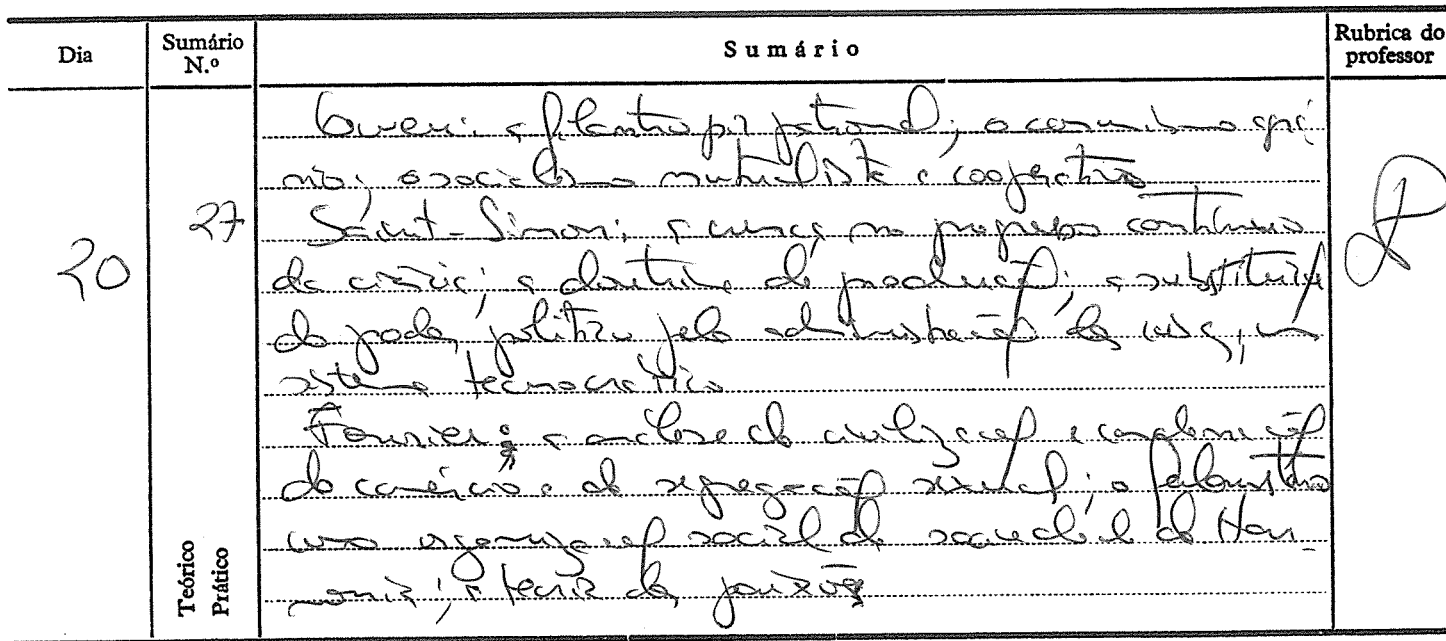 Dia
Sumário N.º
Sumário
Rubrica do professor
20
27
Owen: a filantropia patronal; o comunismo agrá
rio; o socialismo mutualista e cooperativo
Saint-Simon: a crença no progresso contínuo
da ciência; a doutrina da produção; a substituição
do poder político pela administração das coisas, um
sistema tecnocrático
Fourier: a análise da civilização e condenação
do comércio e da segregação sexual; o falanstério
como organização social da sociedade da Har-
monia; a teoria das paixões
Teórico
Prático